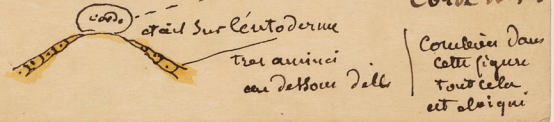 corde
était sur l'entoderme
très aminci
au dessous d'elle
Combien dans
cette figure
tout cela
est